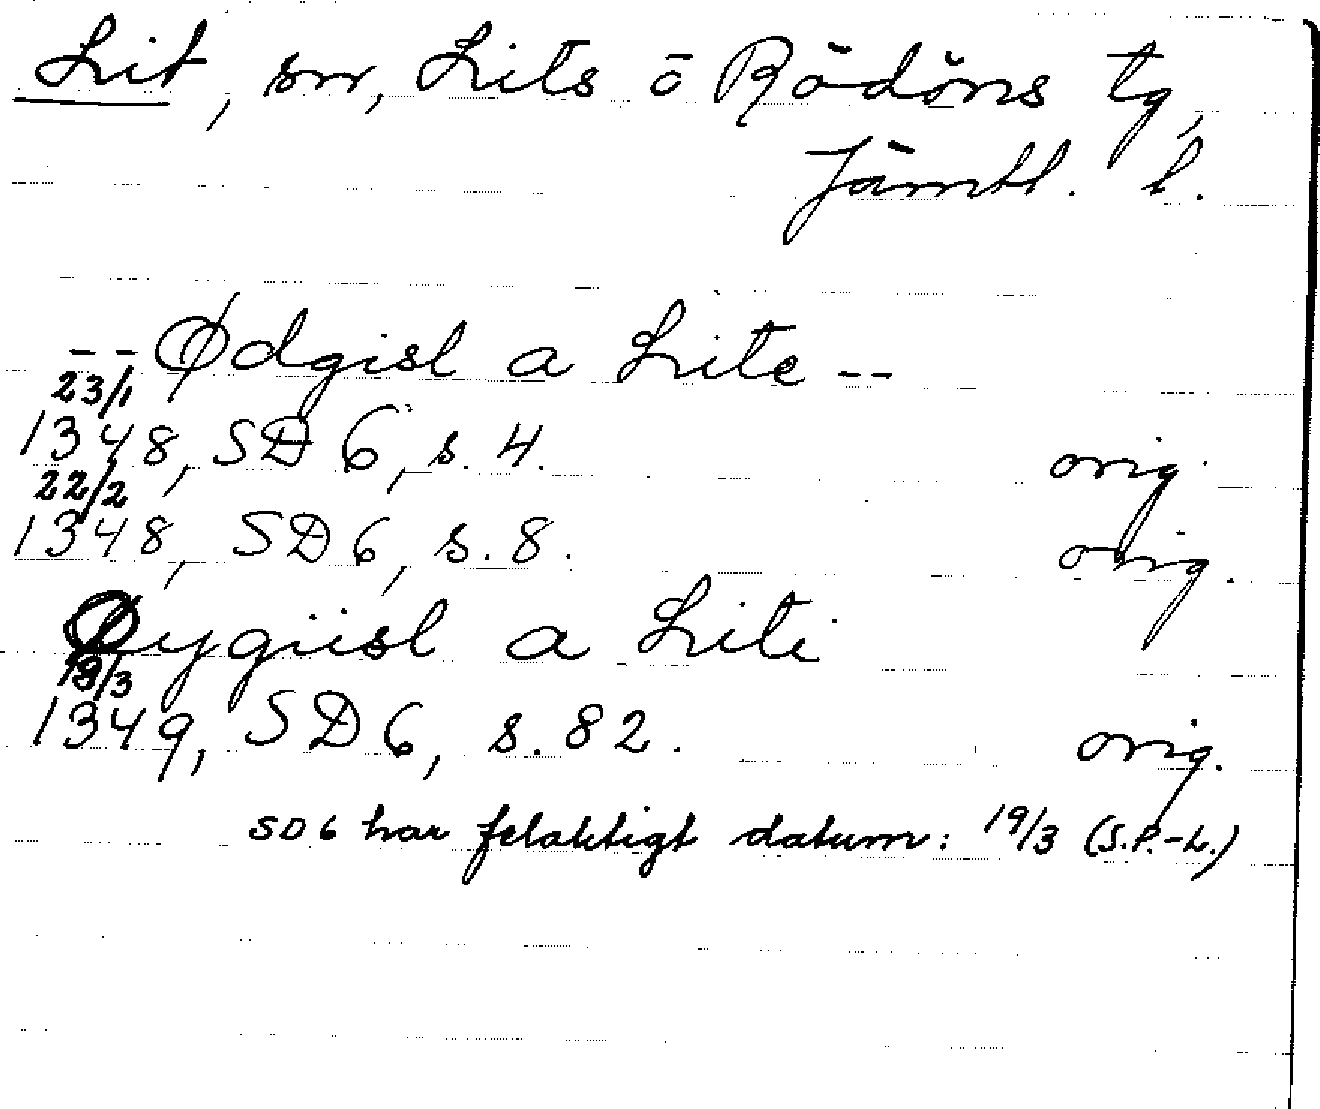 Lit, sn, Lits o Rödöns tg,
Jämtl. l.
-- Ødgisl a Lite --
23/1
1348, SD 6, s. 4. orig.
22/2
1348, SD 6, s. 8. orig.
Øygiisl a Liti
13/3
1349, SD 6, s. 82. orig.
SD 6 har felaktigt datum: 19/3 (S.P.-L.)